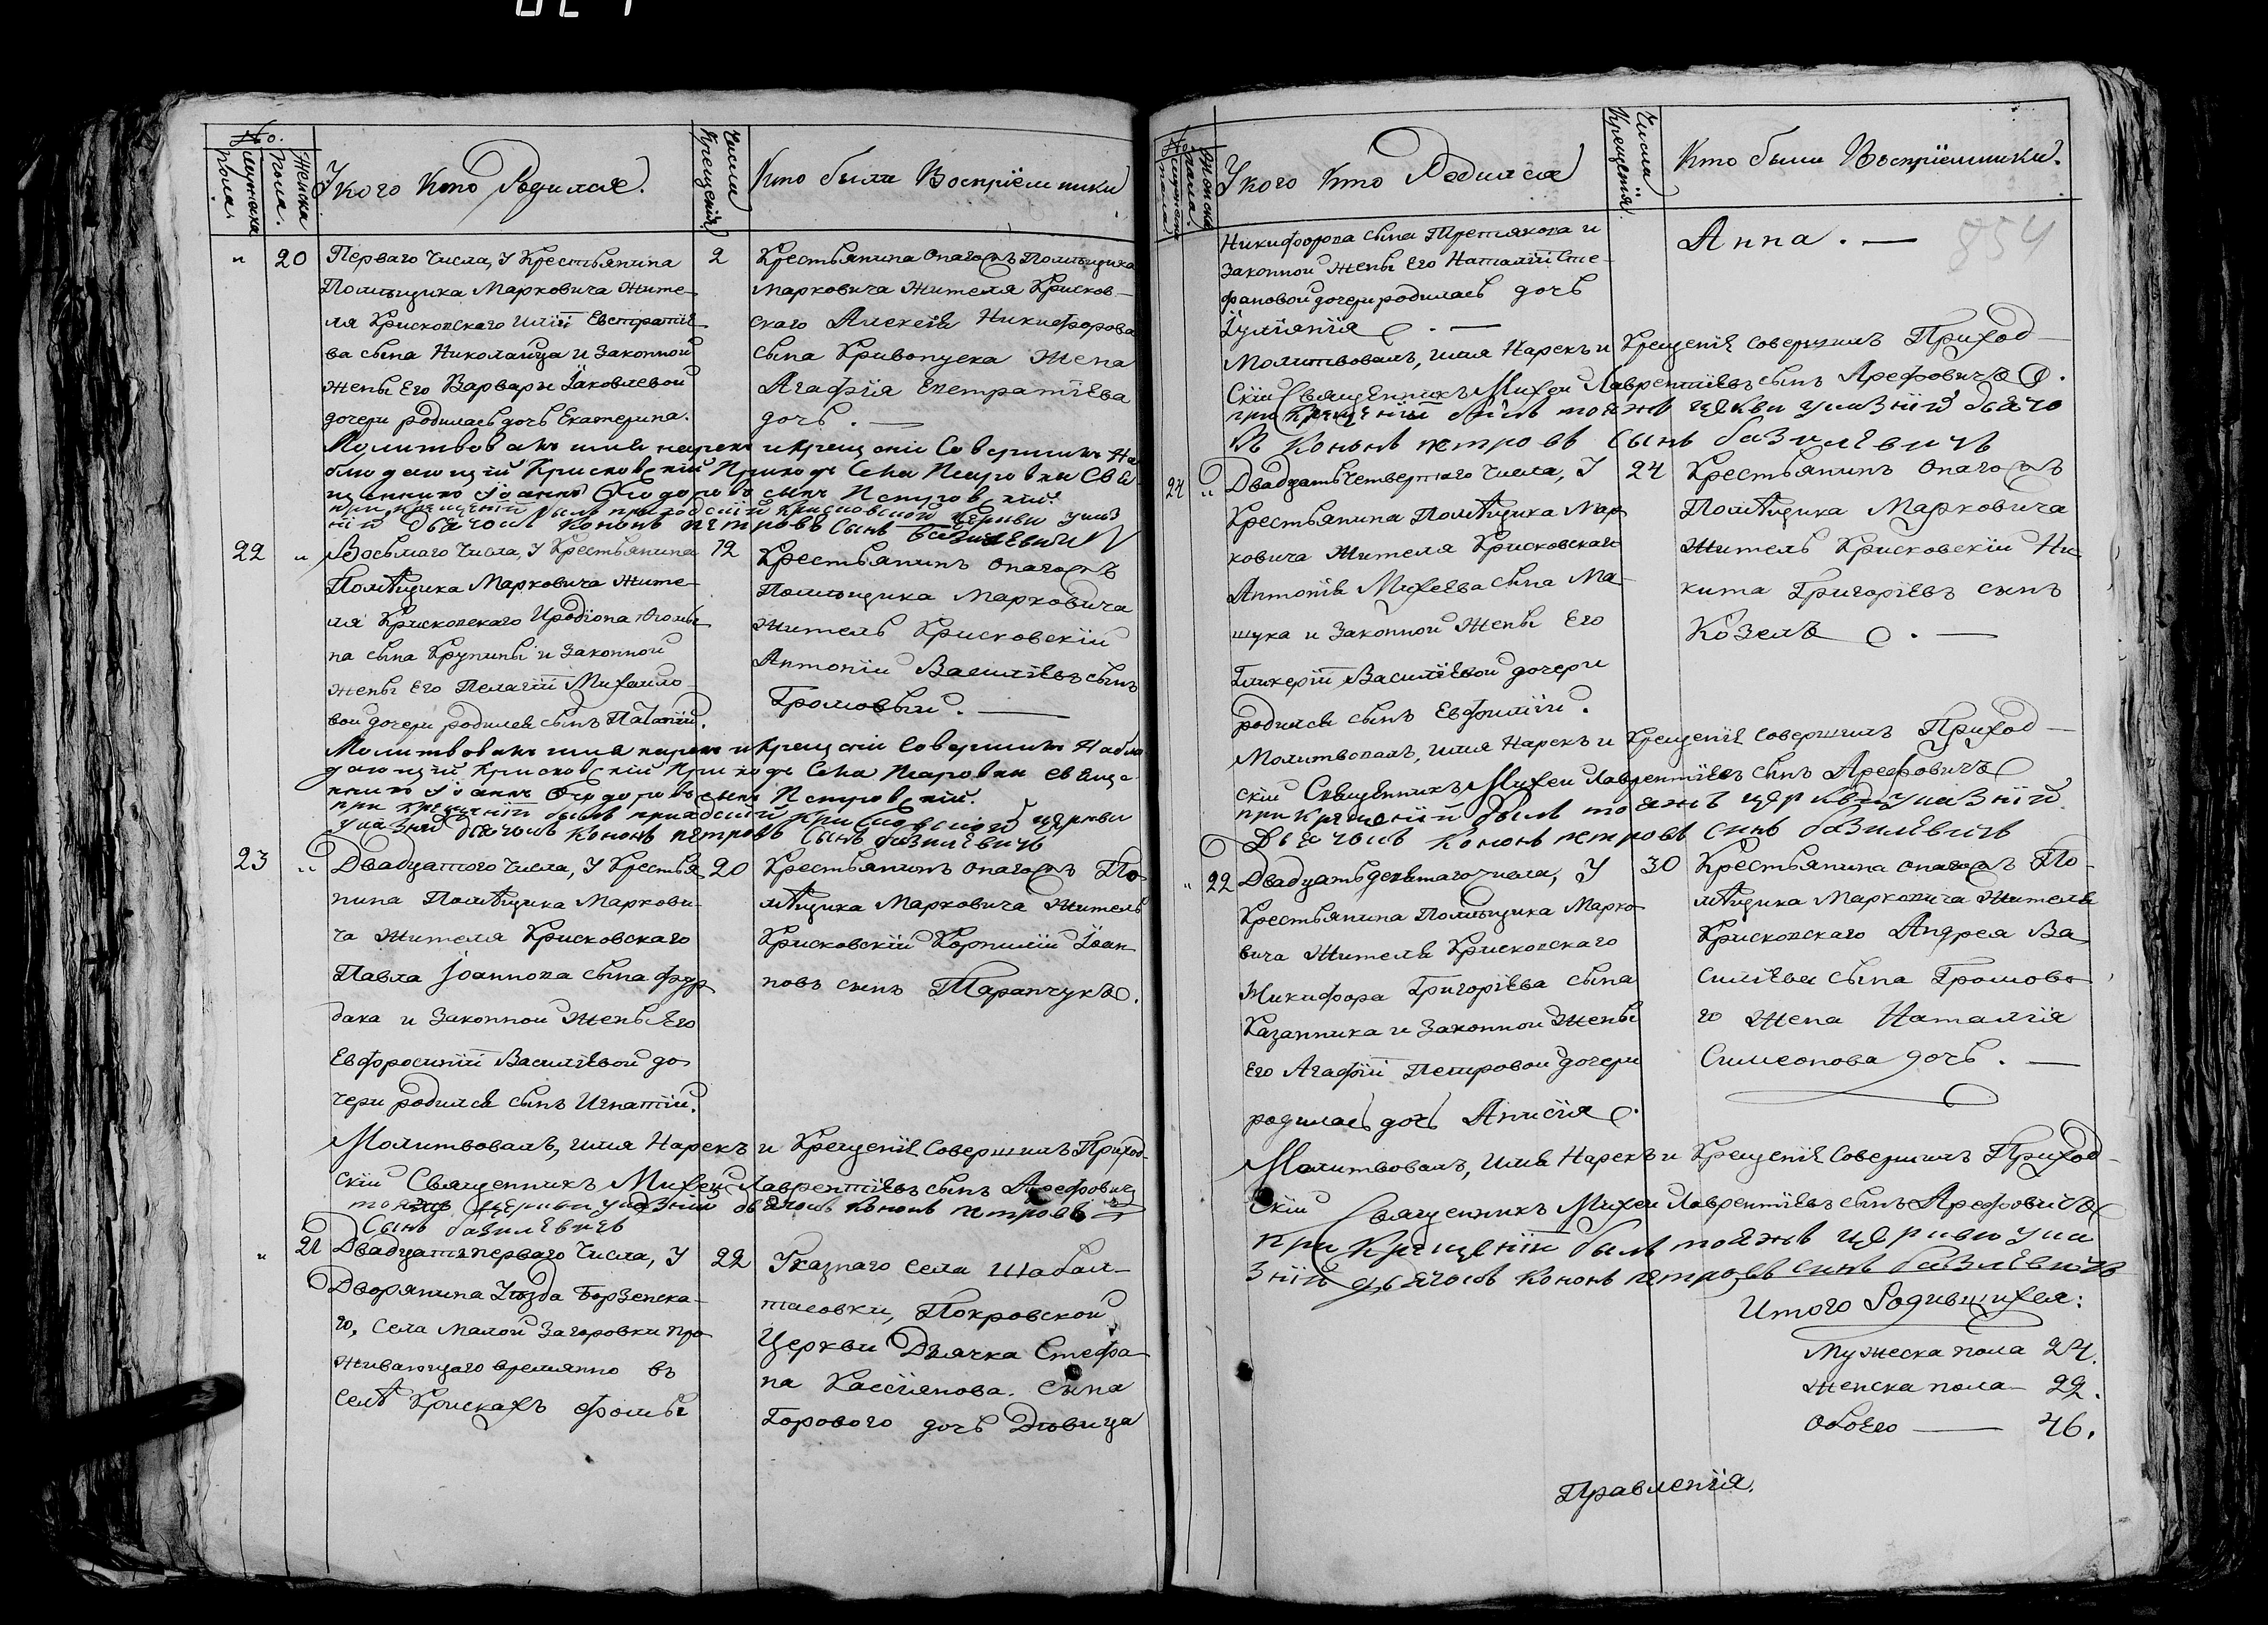 №.
мужеска пола.
женска пола.
У кого кто Родился.
Числа Крещенія
Кто были Воспріемники
" 20 Перваго Числа, у Крестьянина
Помѣщика Марковича жите-
ля Крисковскаго Иліи Евстратіе
ва сына Николаица и Законной
жены Его Варвары Іаковлевой
дочери родилась дочь Екатерина.
2
Крестьянина онагожъ Помѣщика
Марковича жителя Крисков-
скаго Алексѣя Никифорова
сына Кривопуска жена
Агафія Евстратіева
дочь. —
Молитвовалъ имя нарекъ и крещеніе Совершилъ На
блюдающій Крисковскій Приходъ Села Петровки Свя
щенникъ Іоаннъ Ѳеодоровъ сынъ Петровскій.
при крещеніи былъ приходскій крисковской церкви указ
ній дьячокъ Кононъ петровъ Сынъ базилевичъ
22 " Восьмаго Числа, у Крестьянина
Помѣщика Марковича жите-
ля Крисковскаго Иродіона
на сына Крупины и Законной
жены Его Пелагіи Михаило-
вой дочери родился сынъ
12
Крестьянинъ онагожъ
Помѣщика Марковича
житель Крисковскій
Антоній Василіевъ сынъ
Громовый. —
Молитвовалъ имя нарекъ и Крещеніе Совершилъ Наблю
дающій Крисковскій Приходъ Села Петровки Свяще-
нникъ Іоаннъ Ѳеодоровъ сынъ Петровскій.
при крещеніи былъ приходскій крисковской церкви
указній дьячокъ Кононъ петровъ Сынъ базилевичъ
23 " Двадцатого Числа, У Крестья
нина Помѣщика Маркови-
ча жителя Крисковскаго
Павла Іоаннова сына Фур
дака и Законной жены Его
Евфросиніи Василіевой до
чери родился сынъ Игнатій.
20
Крестьянинъ онагожъ По
мѣщика Марковича житель
Крисковскій Корнилій Іоан-
новъ сынъ Таранчукъ.
Молитвовалъ, имя Нарекъ и Крещеніе Совершилъ Приход-
скій Священникъ Михей Лаврентіевъ сынъ Арефовичъ
тояжъ церкви указній дьячокъ Кононъ петровъ
Сынъ базилевичъ
" 21 Двадцать перваго Числа, У
Дворянина Уѣзда Борзенска-
го, Села Малой Загоровки про
живающаго времянно въ
Селѣ Крискахъ Фомы
22
Указнаго Села Шабал-
тасовки, Покровской
Церкви Дьячка Стефа-
на Кассіянова. Сына
Горового дочь Дѣвица
№
мужеска пола
женска пола.
У кого кто Родился
Числа Крещенія.
Кто были Воспріемники.
854
Никифорова сына Третьякова и
Законной жены Его Наталіи Сте-
фановой дочери родилась дочь
Іуліянія. —
Анна. —
Молитвовалъ, имя Нарекъ и Крещеніе Совершилъ Приход-
скій Священникъ Михей Лаврентіевъ сынъ Арефовичъ.
при Крещеніи былъ тояжъ церкви указній дьячо
къ Кононъ петровъ Сынъ базилевичъ
24 " Двадцать четвертаго Числа, У
Крестьянина Помѣщика Мар
ковича жителя Крисковскаго
Антонія Михеева сына Ма-
шука и Законной жены Его
Гликеріи Василіевой дочери
родился сынъ Евфимій.
24
Крестьянинъ онагожъ
Помѣщика Марковича
житель Крисковскій Ни-
кита Григоріевъ сынъ
Козелъ. —
Молитвовалъ, имя Нарекъ и Крещеніе Совершилъ Приход-
скій Священникъ Михей Лаврентіевъ сынъ Арефовичъ
при крещеній былъ тояжъ церкви указній
дьячокъ Кононъ петровъ синъ базилевичъ
" 22 Двадцать девятаго числа, У
Крестьянина Помѣщика Марко
вича жителя Крисковскаго
Никифора Григоріева сына
Казанника и Законной жены
Его Агафіи Петровой дочери
родилась дочь Анисія.
30
Крестьянина онагожъ По-
мѣщика Марковича жителя
Крисковскаго Андрея Ва
силіева сына Громово
го жена Наталія
Симеонова дочь. —
Молитвовалъ, имя Нарекъ и Крещеніе Совершилъ Приход-
скій Священникъ Михей Лаврентіевъ сынъ Арефовичъ
при Крещеніи былъ тояжъ церкви ука
зній дьячокъ Кононъ петровъ синъ базилевичъ
Итого Родившихся:
Мужеска пола 24.
Женска пола — 22.
Обоего — 46.
Правленія.